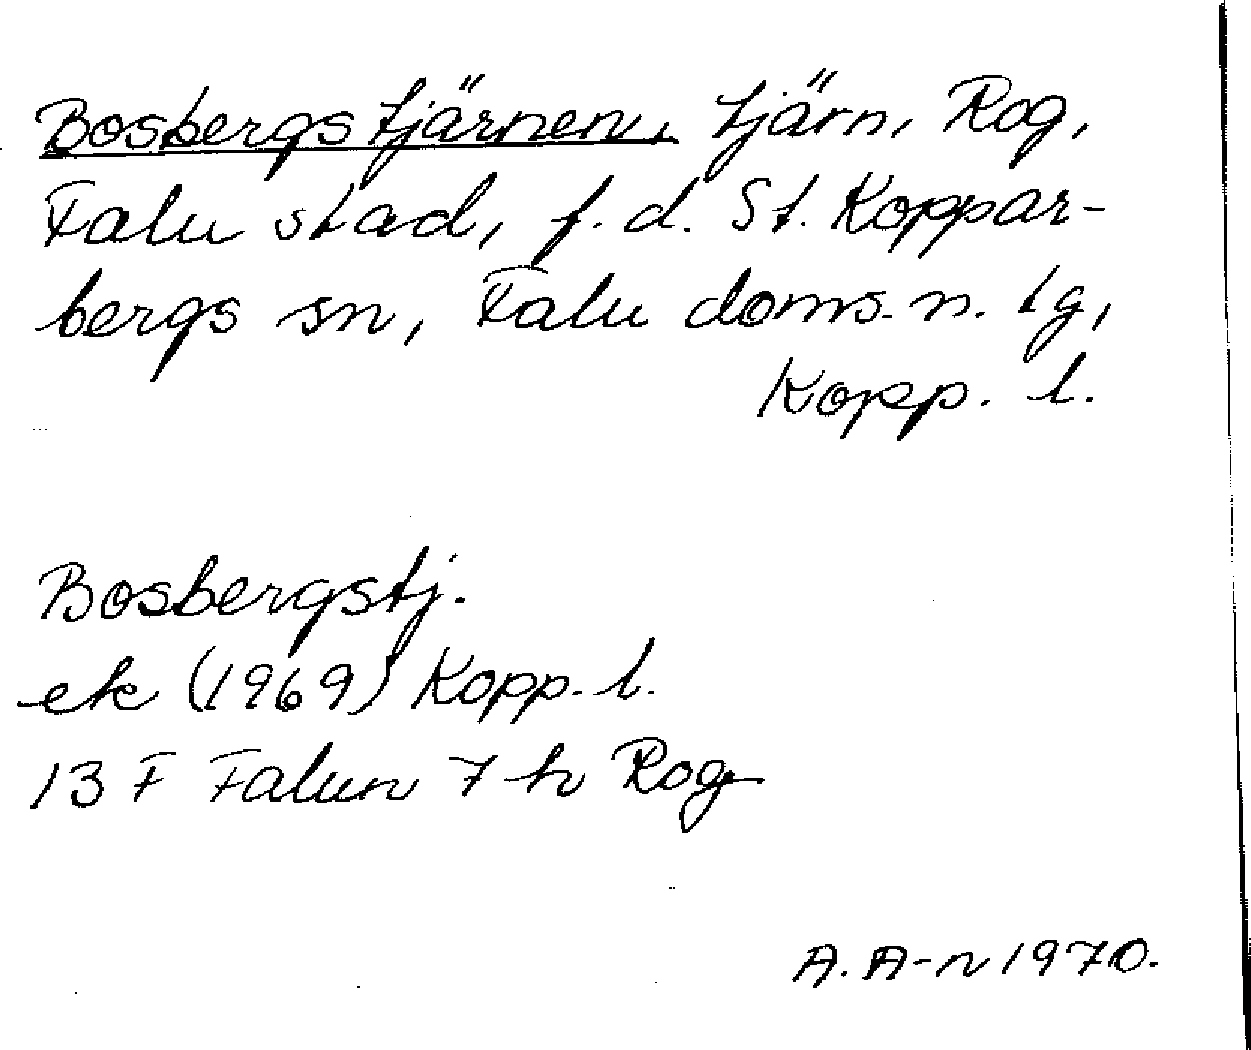 Bosbergstjärnen, tjärn, Rog,
Falu stad, f.d. St. Koppar-
bergs sn, Falu doms. n. tg,
Kopp. l.
Bosbergstj.
ek (1969) Kopp. l.
13 F Falun 7 h Rog
A. A-n 1970.